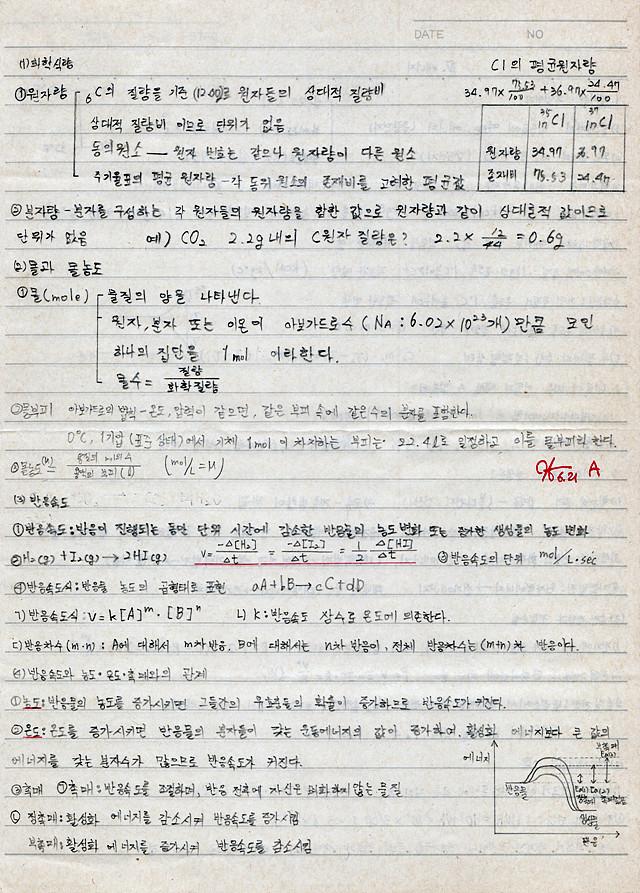 DATE NO
(1) 화학식량
Cl의 평균원자량
34.97×75.53/100 + 36.97×24.47/100
①원자량 6C의 질량을 기준 (12.00)로 원자들의 상대적 질량비
상대적 질량비 이므로 단위가 없음
동위원소 — 원자 번호는 같으나 원자량이 다른 원소
주기율표의 평균 원자량 - 각 동위 원소의 존재비를 고려한 평균값
35 17Cl 37 17Cl
원자량 34.97 36.97
존재비 75.53 24.47
②분자량 - 분자를 구성하는 각 원자들의 원자량을 합한 값으로 원자량과 같이 상대적 값이므로
단위가 없음 예) CO2 2.2g 내의 C원자 질량은? 2.2×12/44 = 0.6g
(2) 몰과 몰농도
①몰(mole) 물질의 양을 나타낸다.
원자, 분자 또는 이온이 아보가드로수 (NA : 6.02×10²³개) 만큼 모인
하나의 집단을 1mol 이라한다.
몰수 = 질량/화학식량
②몰부피 아보가드로의 법칙 - 온도, 압력이 같으면, 같은 부피 속에 같은수의 분자를 포함한다.
0°C, 1기압 (표준 상태)에서 기체 1mol 이 차지하는 부피는 22.4l로 일정하고 이를 몰부피라 한다.
③몰농도(M) = 용질의 몰수/용액의 부피(l) (mol/L=M)
6.21 A
(3) 반응속도
①반응속도 : 반응이 진행되는 동안 단위 시간에 감소한 반응물의 농도변화 또는 증가한 생성물의 농도 변화
②H2(g) + I2(g) → 2HI(g) v = -Δ[H2]/Δt = -Δ[I2]/Δt = 1/2 Δ[HI]/Δt ③반응속도의 단위 mol/L·sec
④반응속도식 : 반응물 농도의 곱형태로 표현 aA+bB→cC+dD
ㄱ) 반응속도식 : v=k[A]ᵐ·[B]ⁿ ㄴ) k : 반응속도 상수로 온도에 의존한다.
ㄷ) 반응차수 (m·n) : A에 대해서 m차반응, B에 대해서는 n차 반응이, 전체 반응차수는 (m+n)차 반응이다.
(4) 반응속도와 농도·온도·촉매와의 관계
①농도 : 반응물의 농도를 증가시키면 그들간의 유효충돌의 확률이 증가하므로 반응속도가 커진다.
②온도 : 온도를 증가시키면 반응물의 분자들이 갖는 운동에너지의 값이 증가하여, 활성화 에너지보다 큰 값의
에너지를 갖는 분자수가 많으므로 반응속도가 커진다.
③촉매 ㉠촉매 : 반응속도를 조절하며, 반응 전후에 자신은 변화하지 않는 물질
㉡ 정촉매 : 활성화 에너지를 감소시켜 반응속도를 증가시킴
부촉매 : 활성화 에너지를 증가시켜 반응속도를 감소시킴
에너지
부촉매
반응물
생성물
반응